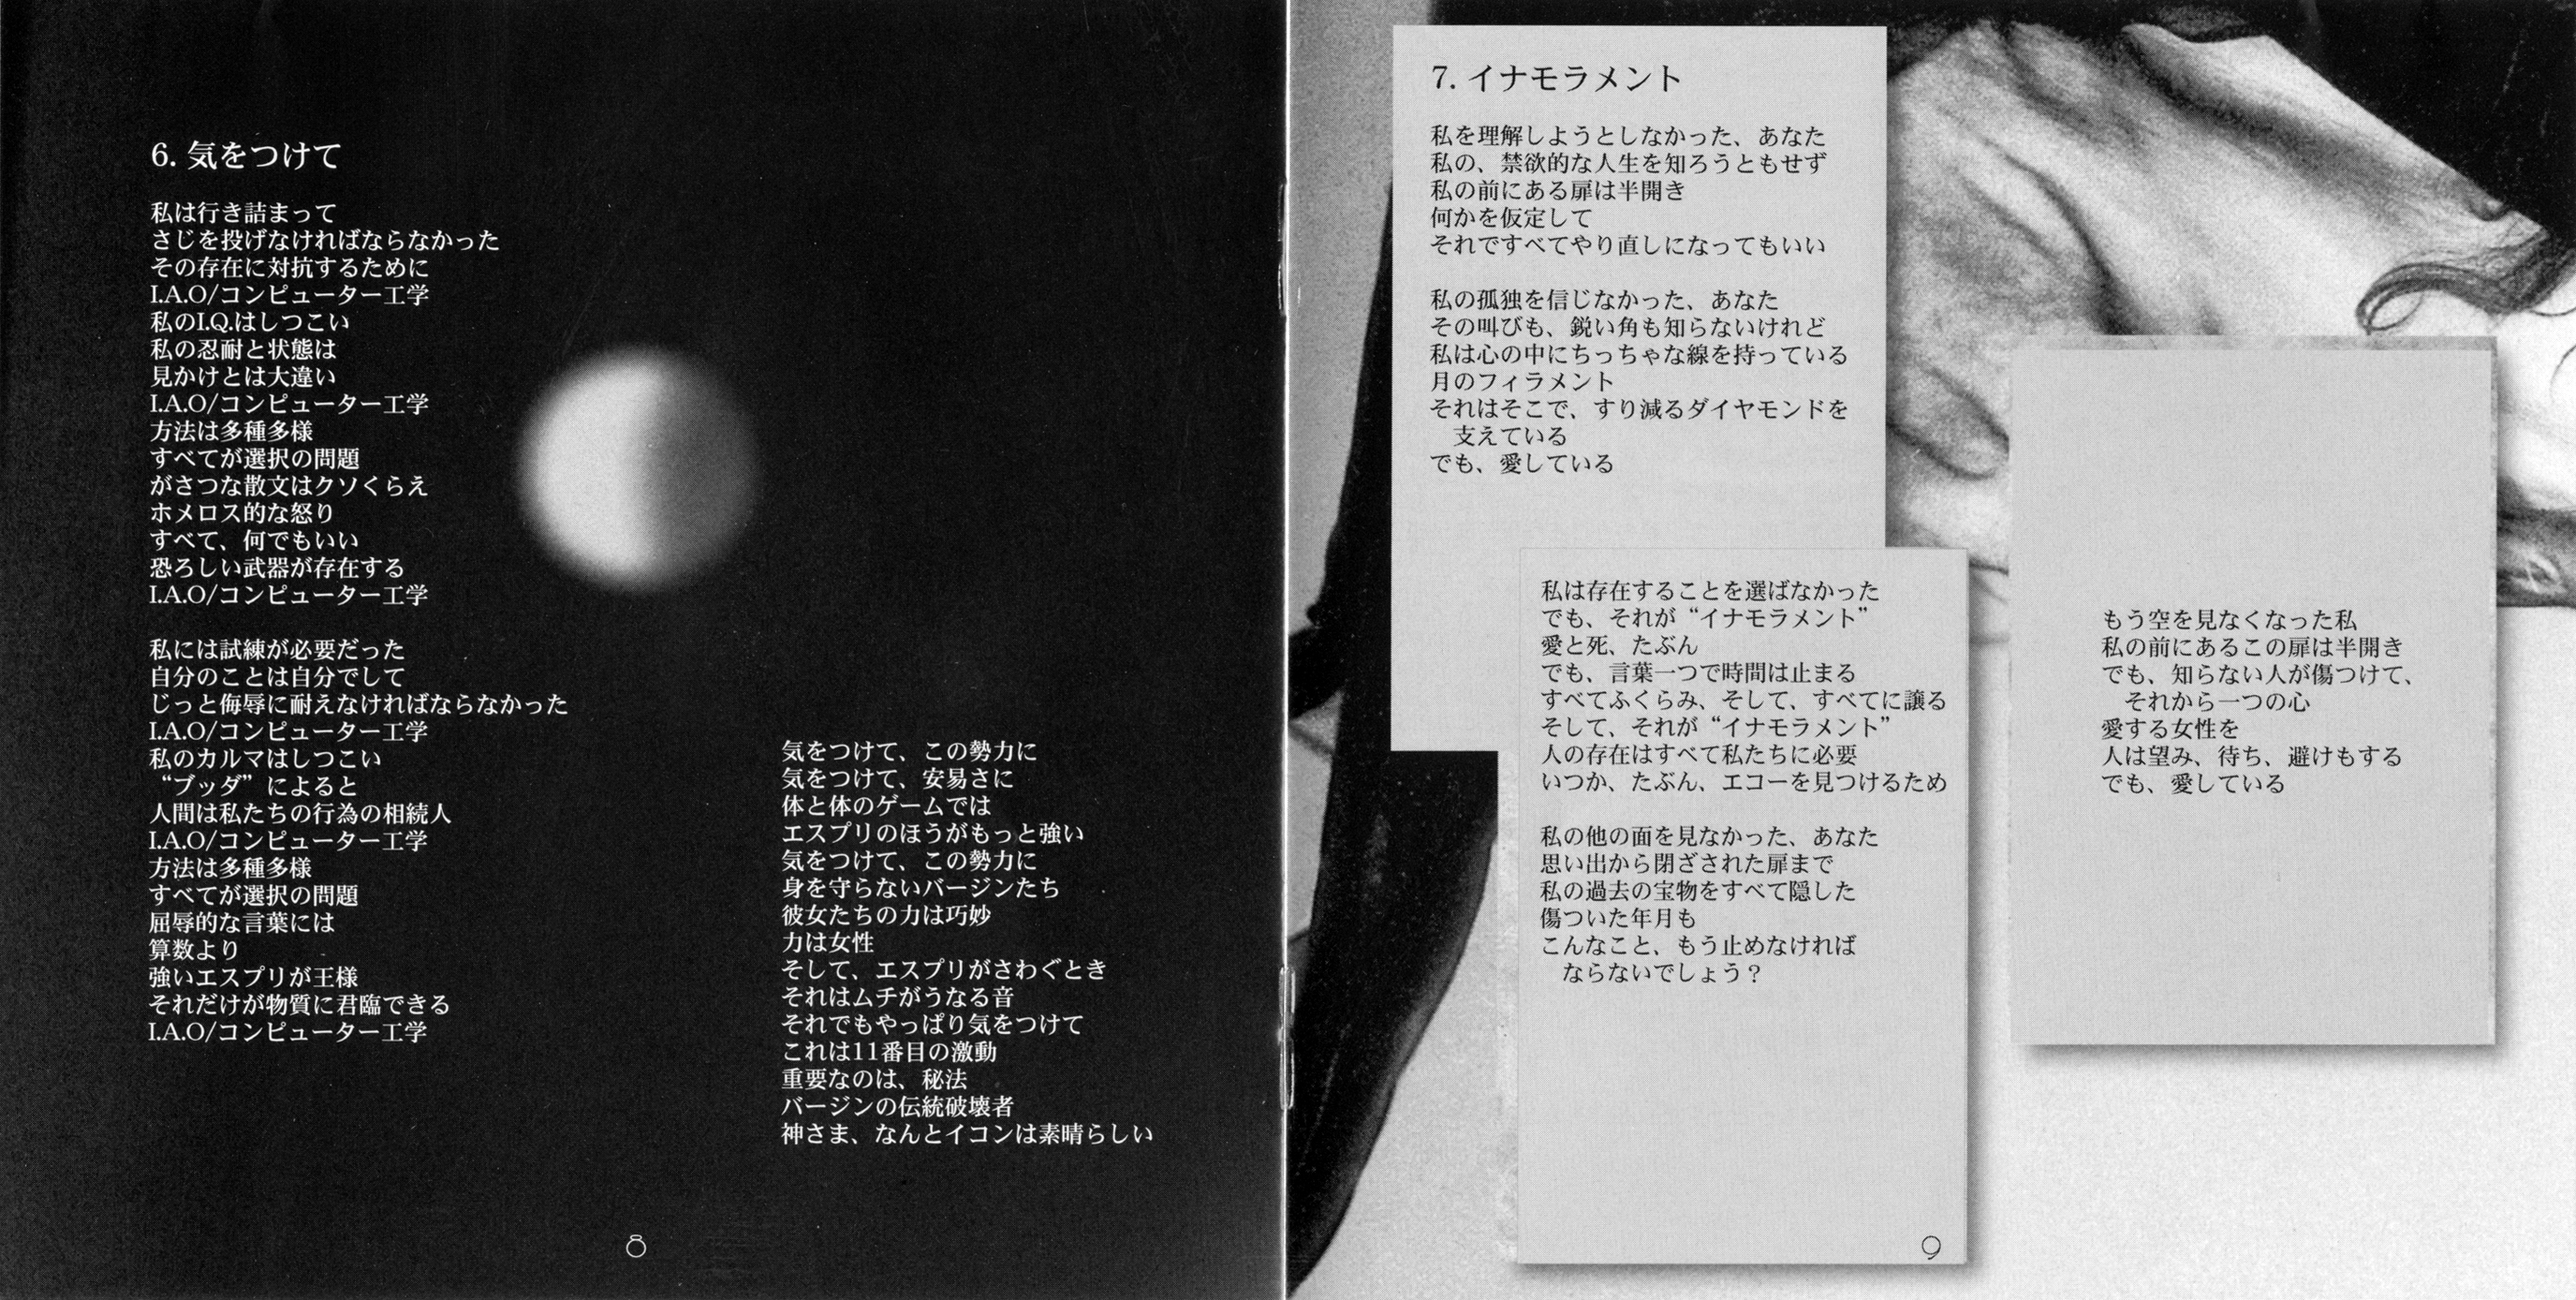 6. 気をつけて
私は行き詰まって
さじを投げなければならなかった
その存在に対抗するために
I.A.O/コンピューター工学
私のI.Q.はしつこい
私の忍耐と状態は
見かけとは大違い
I.A.O/コンピューター工学
方法は多種多様
すべてが選択の問題
がさつな散文はクソくらえ
ホメロス的な怒り
すべて、何でもいい
恐ろしい武器が存在する
I.A.O/コンピューター工学
私には試練が必要だった
自分のことは自分でして
じっと侮辱に耐えなければならなかった
I.A.O/コンピューター工学
私のカルマはしつこい
“ブッダ”によると
人間は私たちの行為の相続人
I.A.O/コンピューター工学
方法は多種多様
すべてが選択の問題
屈辱的な言葉には
算数より
強いエスプリが王様
それだけが物質に君臨できる
I.A.O/コンピューター工学
気をつけて、この勢力に
気をつけて、安易さに
体と体のゲームでは
エスプリのほうがもっと強い
気をつけて、この勢力に
身を守らないバージンたち
彼女たちの力は巧妙
力は女性
そして、エスプリがさわぐとき
それはムチがうなる音
それでもやっぱり気をつけて
これは11番目の激動
重要なのは、秘法
バージンの伝統破壊者
神さま、なんとイコンは素晴らしい
8
7. イナモラメント
私を理解しようとしなかった、あなた
私の、禁欲的な人生を知ろうともせず
私の前にある扉は半開き
何かを仮定して
それですべてやり直しになってもいい
私の孤独を信じなかった、あなた
その叫びも、鋭い角も知らないけれど
私は心の中にちっちゃな線を持っている
月のフィラメント
それはそこで、すり減るダイヤモンドを
支えている
でも、愛している
私は存在することを選ばなかった
でも、それが“イナモラメント”
愛と死、たぶん
でも、言葉一つで時間は止まる
すべてふくらみ、そして、すべてに譲る
そして、それが“イナモラメント”
人の存在はすべて私たちに必要
いつか、たぶん、エコーを見つけるため
私の他の面を見なかった、あなた
思い出から閉ざされた扉まで
私の過去の宝物をすべて隠した
傷ついた年月も
こんなこと、もう止めなければ
ならないでしょう？
もう空を見なくなった私
私の前にあるこの扉は半開き
でも、知らない人が傷つけて、
それから一つの心
愛する女性を
人は望み、待ち、避けもする
でも、愛している
9